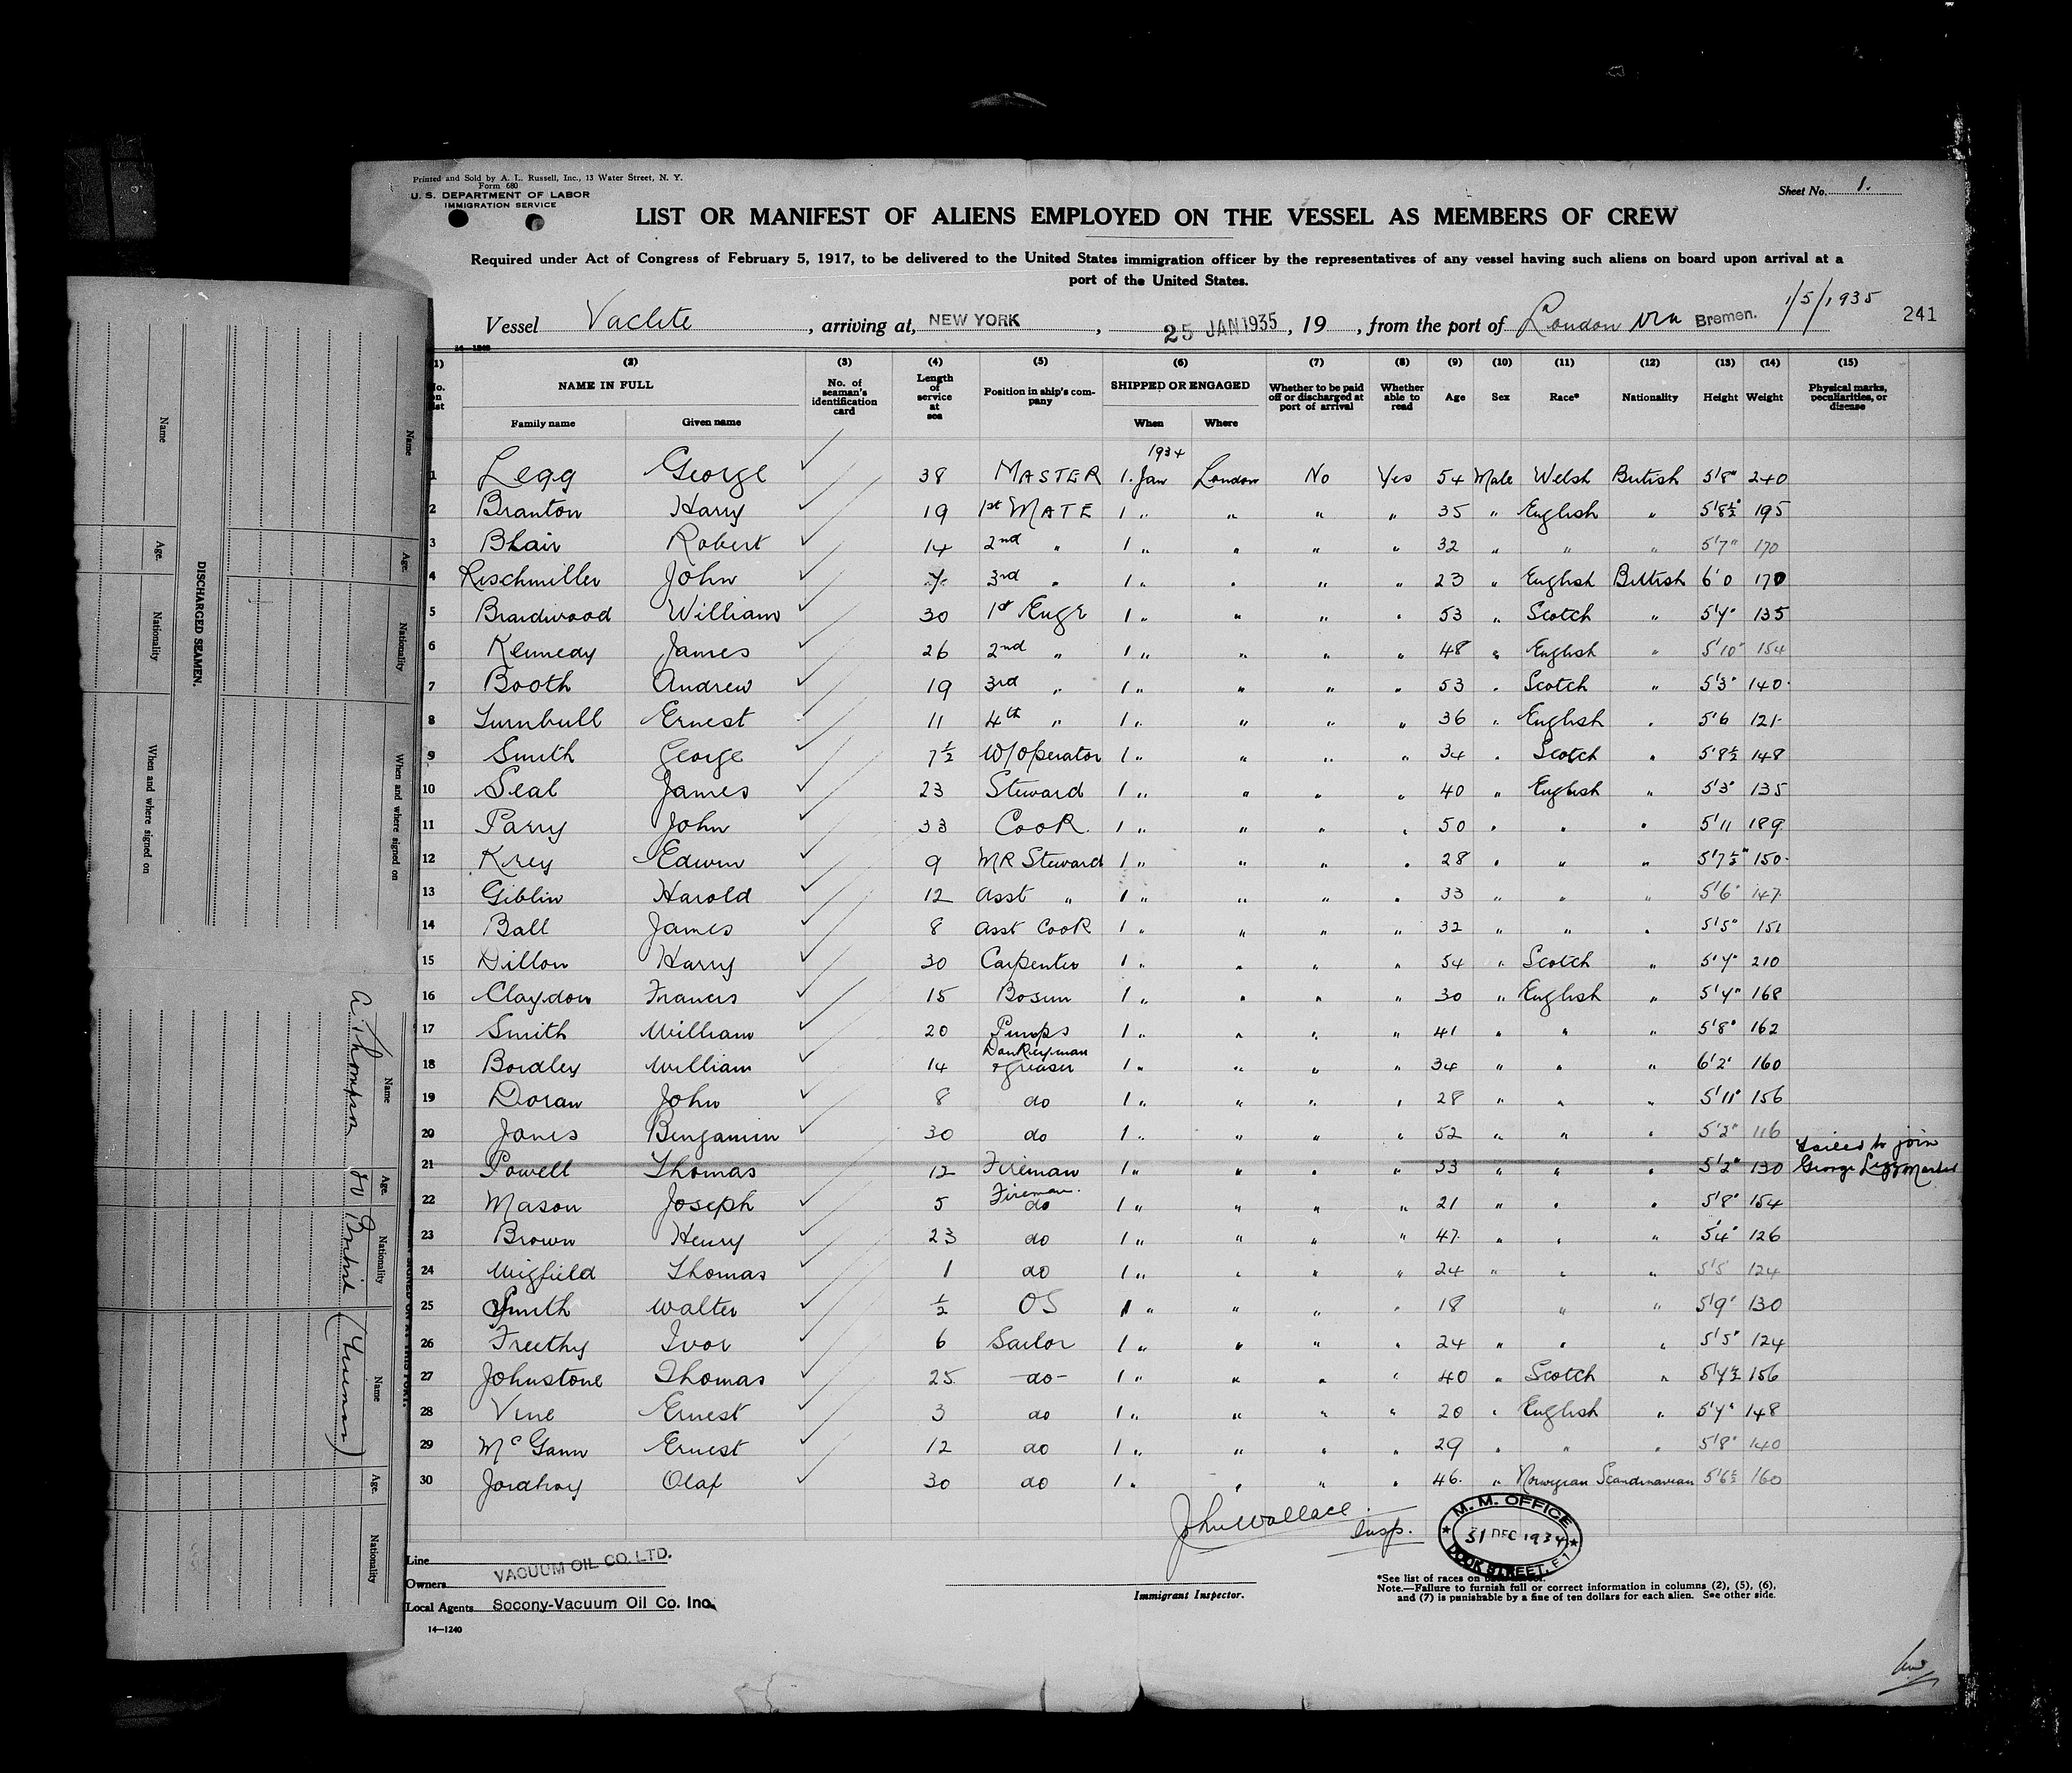 Printed and Sold by A. L. Russell, Inc., 13 Water Street, N. Y.
Form 680
U. S. DEPARTMENT OF LABOR
IMMIGRATION SERVICE
Sheet No. 1.
LIST OR MANIFEST OF ALIENS EMPLOYED ON THE VESSEL AS MEMBERS OF CREW
Required under Act of Congress of February 5, 1917, to be delivered to the United States immigration officer by the representatives of any vessel having such aliens on board upon arrival at a
port of the United States.
Vessel Vaclite, arriving at, NEW YORK, 25 JAN 1935, 19, from the port of London via Bremen. 1/5/1935 241
14—1240
(1) (2) (3) (4) (5) (6) (7) (8) (9) (10) (11) (12) (13) (14) (15)
No. on list NAME IN FULL Family name Given name No. of seaman's identification card Length of service at sea Position in ship's company SHIPPED OR ENGAGED When Where Whether to be paid off or discharged at port of arrival Whether able to read Age Sex Race* Nationality Height Weight Physical marks, peculiarities, or disease
1934
1 Legg George 38 MASTER 1. Jan London No Yes 54 Male Welsh British 5'8" 240
2 Branton Harry 19 1st MATE 1 " " " " 35 " English " 5'8½" 195
3 Blair Robert 14 2nd " 1 " " " " 32 " " " 5'7" 170
4 Rischmiller John 7 3rd " 1 " " " " 23 " English British 6'0 170
5 Braidwood William 30 1st Engr 1 " " " " 53 " Scotch " 5'7" 135
6 Kennedy James 26 2nd " 1 " " " " 48 " English " 5'10" 154
7 Booth Andrew 19 3rd " 1 " " " " 53 " Scotch " 5'3" 140
8 Turnbull Ernest 11 4th " 1 " " " " 36 " English " 5'6 121
9 Smith George 7½ W/Operator 1 " " " " 34 " Scotch " 5'8½ 148
10 Seal James 23 Steward 1 " " " " 40 " English " 5'3" 135
11 Parry John 33 Cook 1 " " " " 50 " " " 5'11 189
12 Krey Edwin 9 MR Steward 1 " " " " 28 " " " 5'7½" 150
13 Giblin Harold 12 Asst " 1 " " " " 33 " " " 5'6" 147
14 Ball James 8 Asst Cook 1 " " " " 32 " " " 5'5" 151
15 Dillon Harry 30 Carpenter 1 " " " " 54 " Scotch " 5'7" 210
16 Claydon Francis 15 Bosun 1 " " " " 30 " English " 5'7" 168
17 Smith William 20 Pumps 1 " " " " 41 " " " 5'8" 162
18 Bordley William 14 Donkeyman & Greaser 1 " " " " 34 " " " 6'2" 160
19 Doran John 8 do 1 " " " " 28 " " " 5'11" 156
20 Jones Benjamin 30 do 1 " " " " 52 " " " 5'2" 116
21 Powell Thomas 12 Fireman 1 " " " " 33 " " " 5'2" 130 Failed to join George Legg Master
22 Mason Joseph 5 Fireman do 1 " " " " 21 " " " 5'8" 154
23 Brown Henry 23 do 1 " " " " 47 " " " 5'4" 126
24 Wigfield Thomas 1 do 1 " " " " 24 " " " 5'5 124
25 Smith Walter ½ OS 1 " " " " 18 " " " 5'9" 130
26 Freethy Ivor 6 Sailor 1 " " " " 24 " " " 5'5" 124
27 Johnstone Thomas 25 -do- 1 " " " " 40 " Scotch " 5'7½ 156
28 Vine Ernest 3 do 1 " " " " 20 " English " 5'7" 148
29 McGann Ernest 12 do 1 " " " " 29 " " " 5'8" 140
30 Olaf 30 do 1 " " " " 46 " Norwegian Scandinavian 5'6½ 160
John Wallace Insp.
Immigrant Inspector.
M. M. OFFICE
31 DEC 1934
DOCK STREET. E 1
Line
Owners VACUUM OIL CO. LTD.
Local Agents Socony-Vacuum Oil Co. Inc.
14—1240
*See list of races on
Note.—Failure to furnish full or correct information in columns (2), (5), (6),
and (7) is punishable by a fine of ten dollars for each alien. See other side.
DISCHARGED SEAMEN.
Name Age. Nationality When and where signed on
Name Age. Nationality When and where signed on
Name Age. Nationality Name Age. Nationality
A. Thompson British (Fireman)